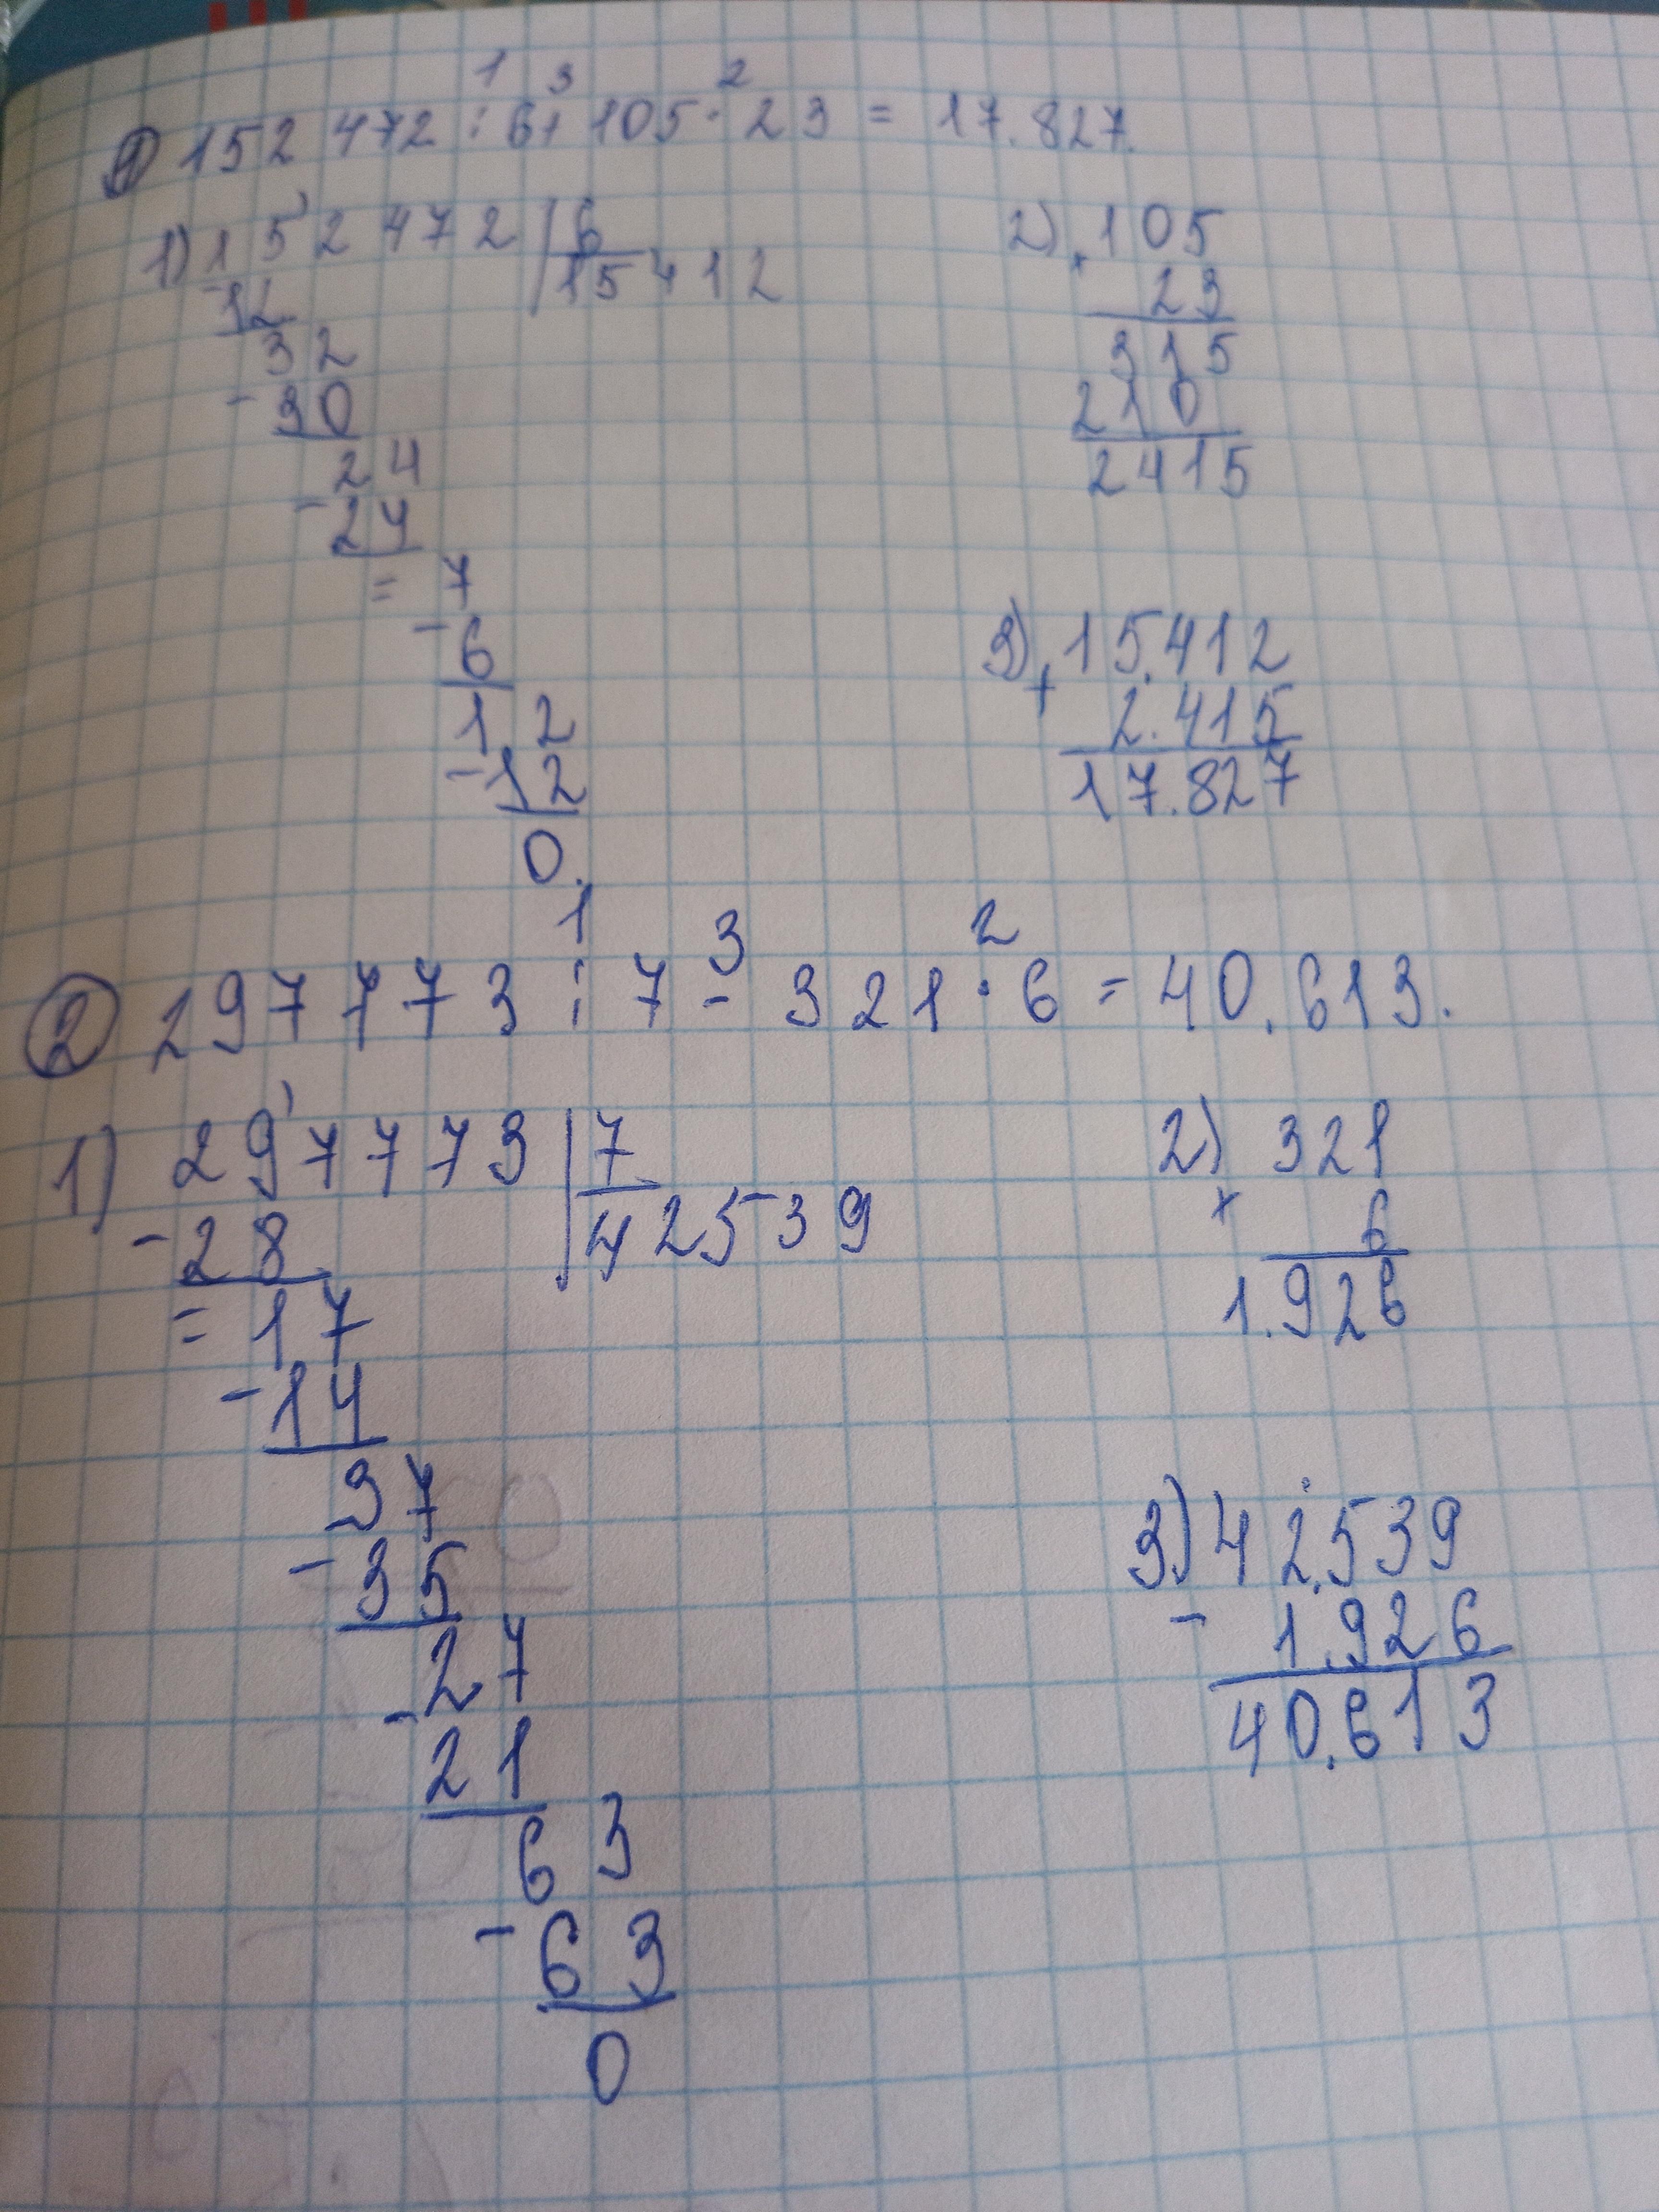 1 3 2
1 152 472 : 6 + 105 · 23 = 17.827.
1) 152 472 | 6
- 12 15412
32
- 30
24
- 24
= 7
- 6
12
- 12
0.
2) × 105
23
315
210
2415
3) + 15.412
2.415
17.827
1 3 2
2 297773 : 7 - 321 · 6 = 40.613.
1) 297773 | 7
- 28 42539
= 17
- 14
37
- 35
27
- 21
63
- 63
0
2) × 321
6
1.926
3) 42.539
- 1.926
40.613